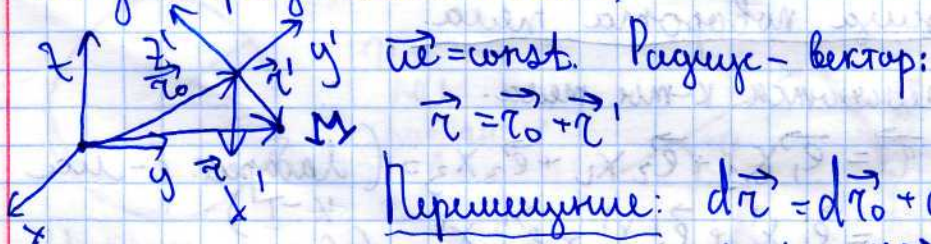 z z' y' r⃗₀ r⃗' M y r⃗ x' x
u⃗e = const. Радиус – вектор:
r⃗ = r⃗₀ + r⃗'
Перемещение: dr⃗ = dr⃗₀ +